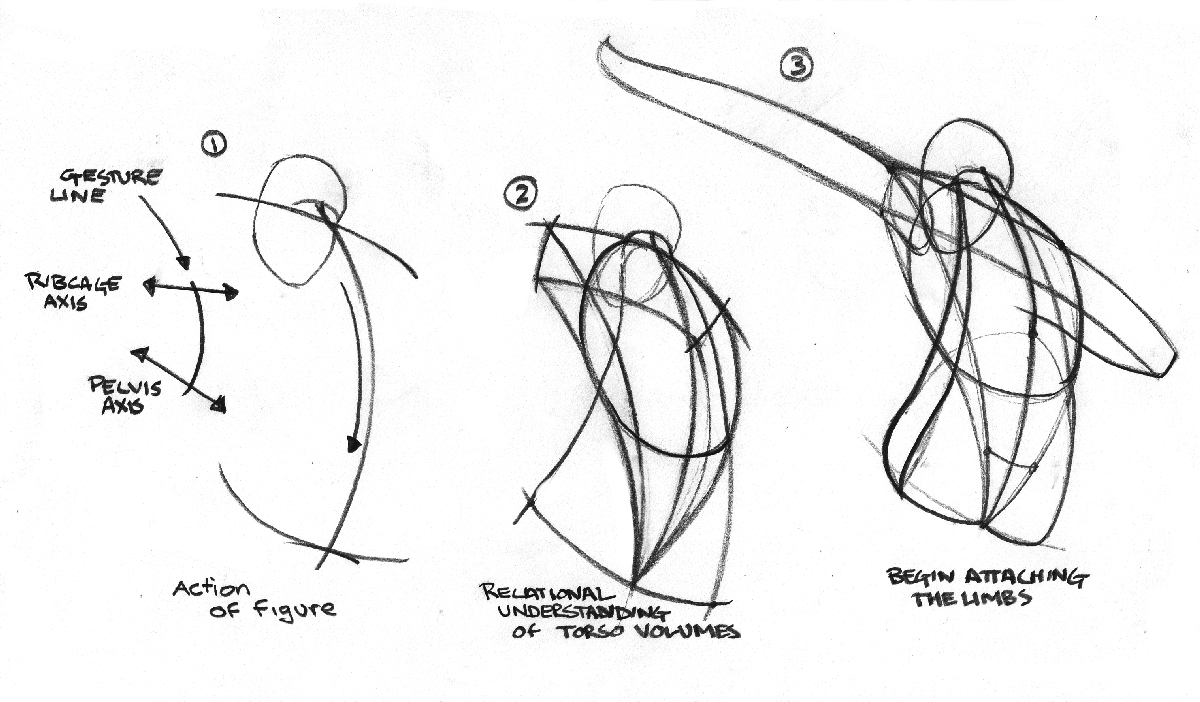 1
GESTURE
LINE
RIBCAGE
AXIS
PELVIS
AXIS
Action
of Figure
2
RELATIONAL
UNDERSTANDING
OF TORSO VOLUMES
3
BEGIN ATTACHING
THE LIMBS